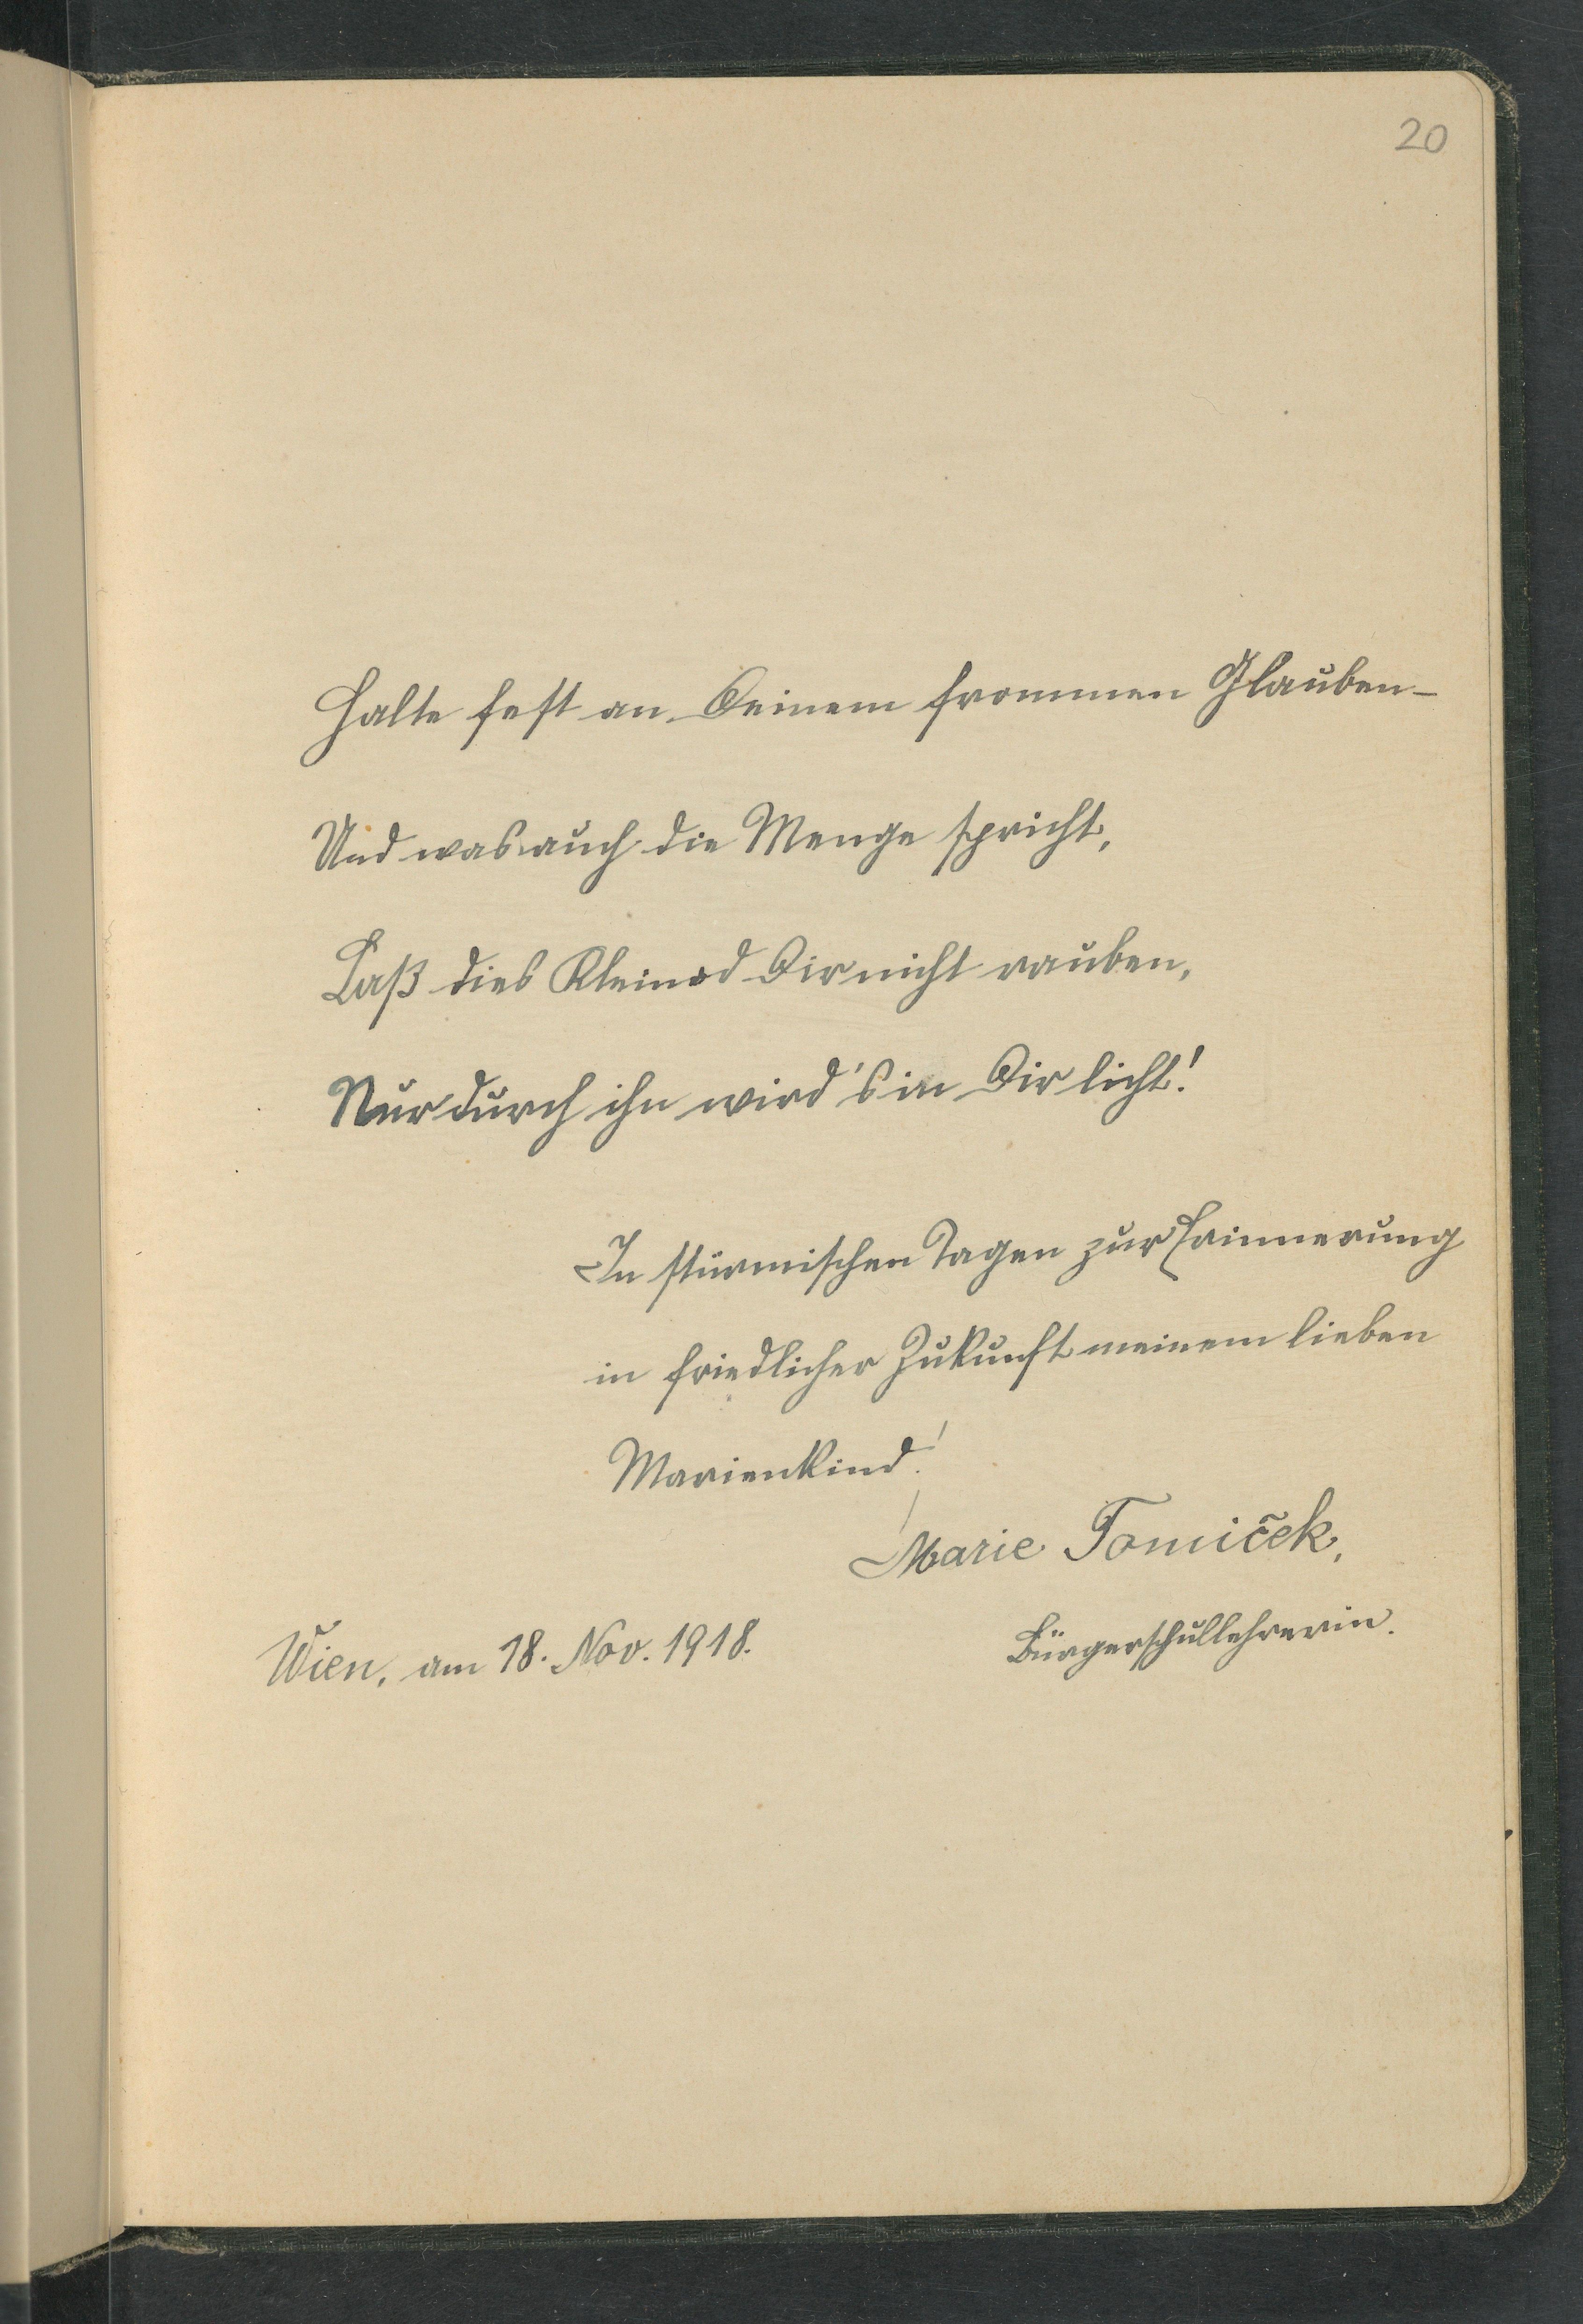 20
Halte fest an Deinem frommen Glauben –
Und was auch die Menge spricht,
Laß dies Kleinod Dir nicht rauben,
Nur durch ihn wird's in Dir licht!
In stürmischen Tagen zur Erinnerung
in friedlicher Zukunft meinem lieben
Marienkind!
Marie Tomiček,
Bürgerschullehrerin.
Wien, am 18. Nov. 1918.